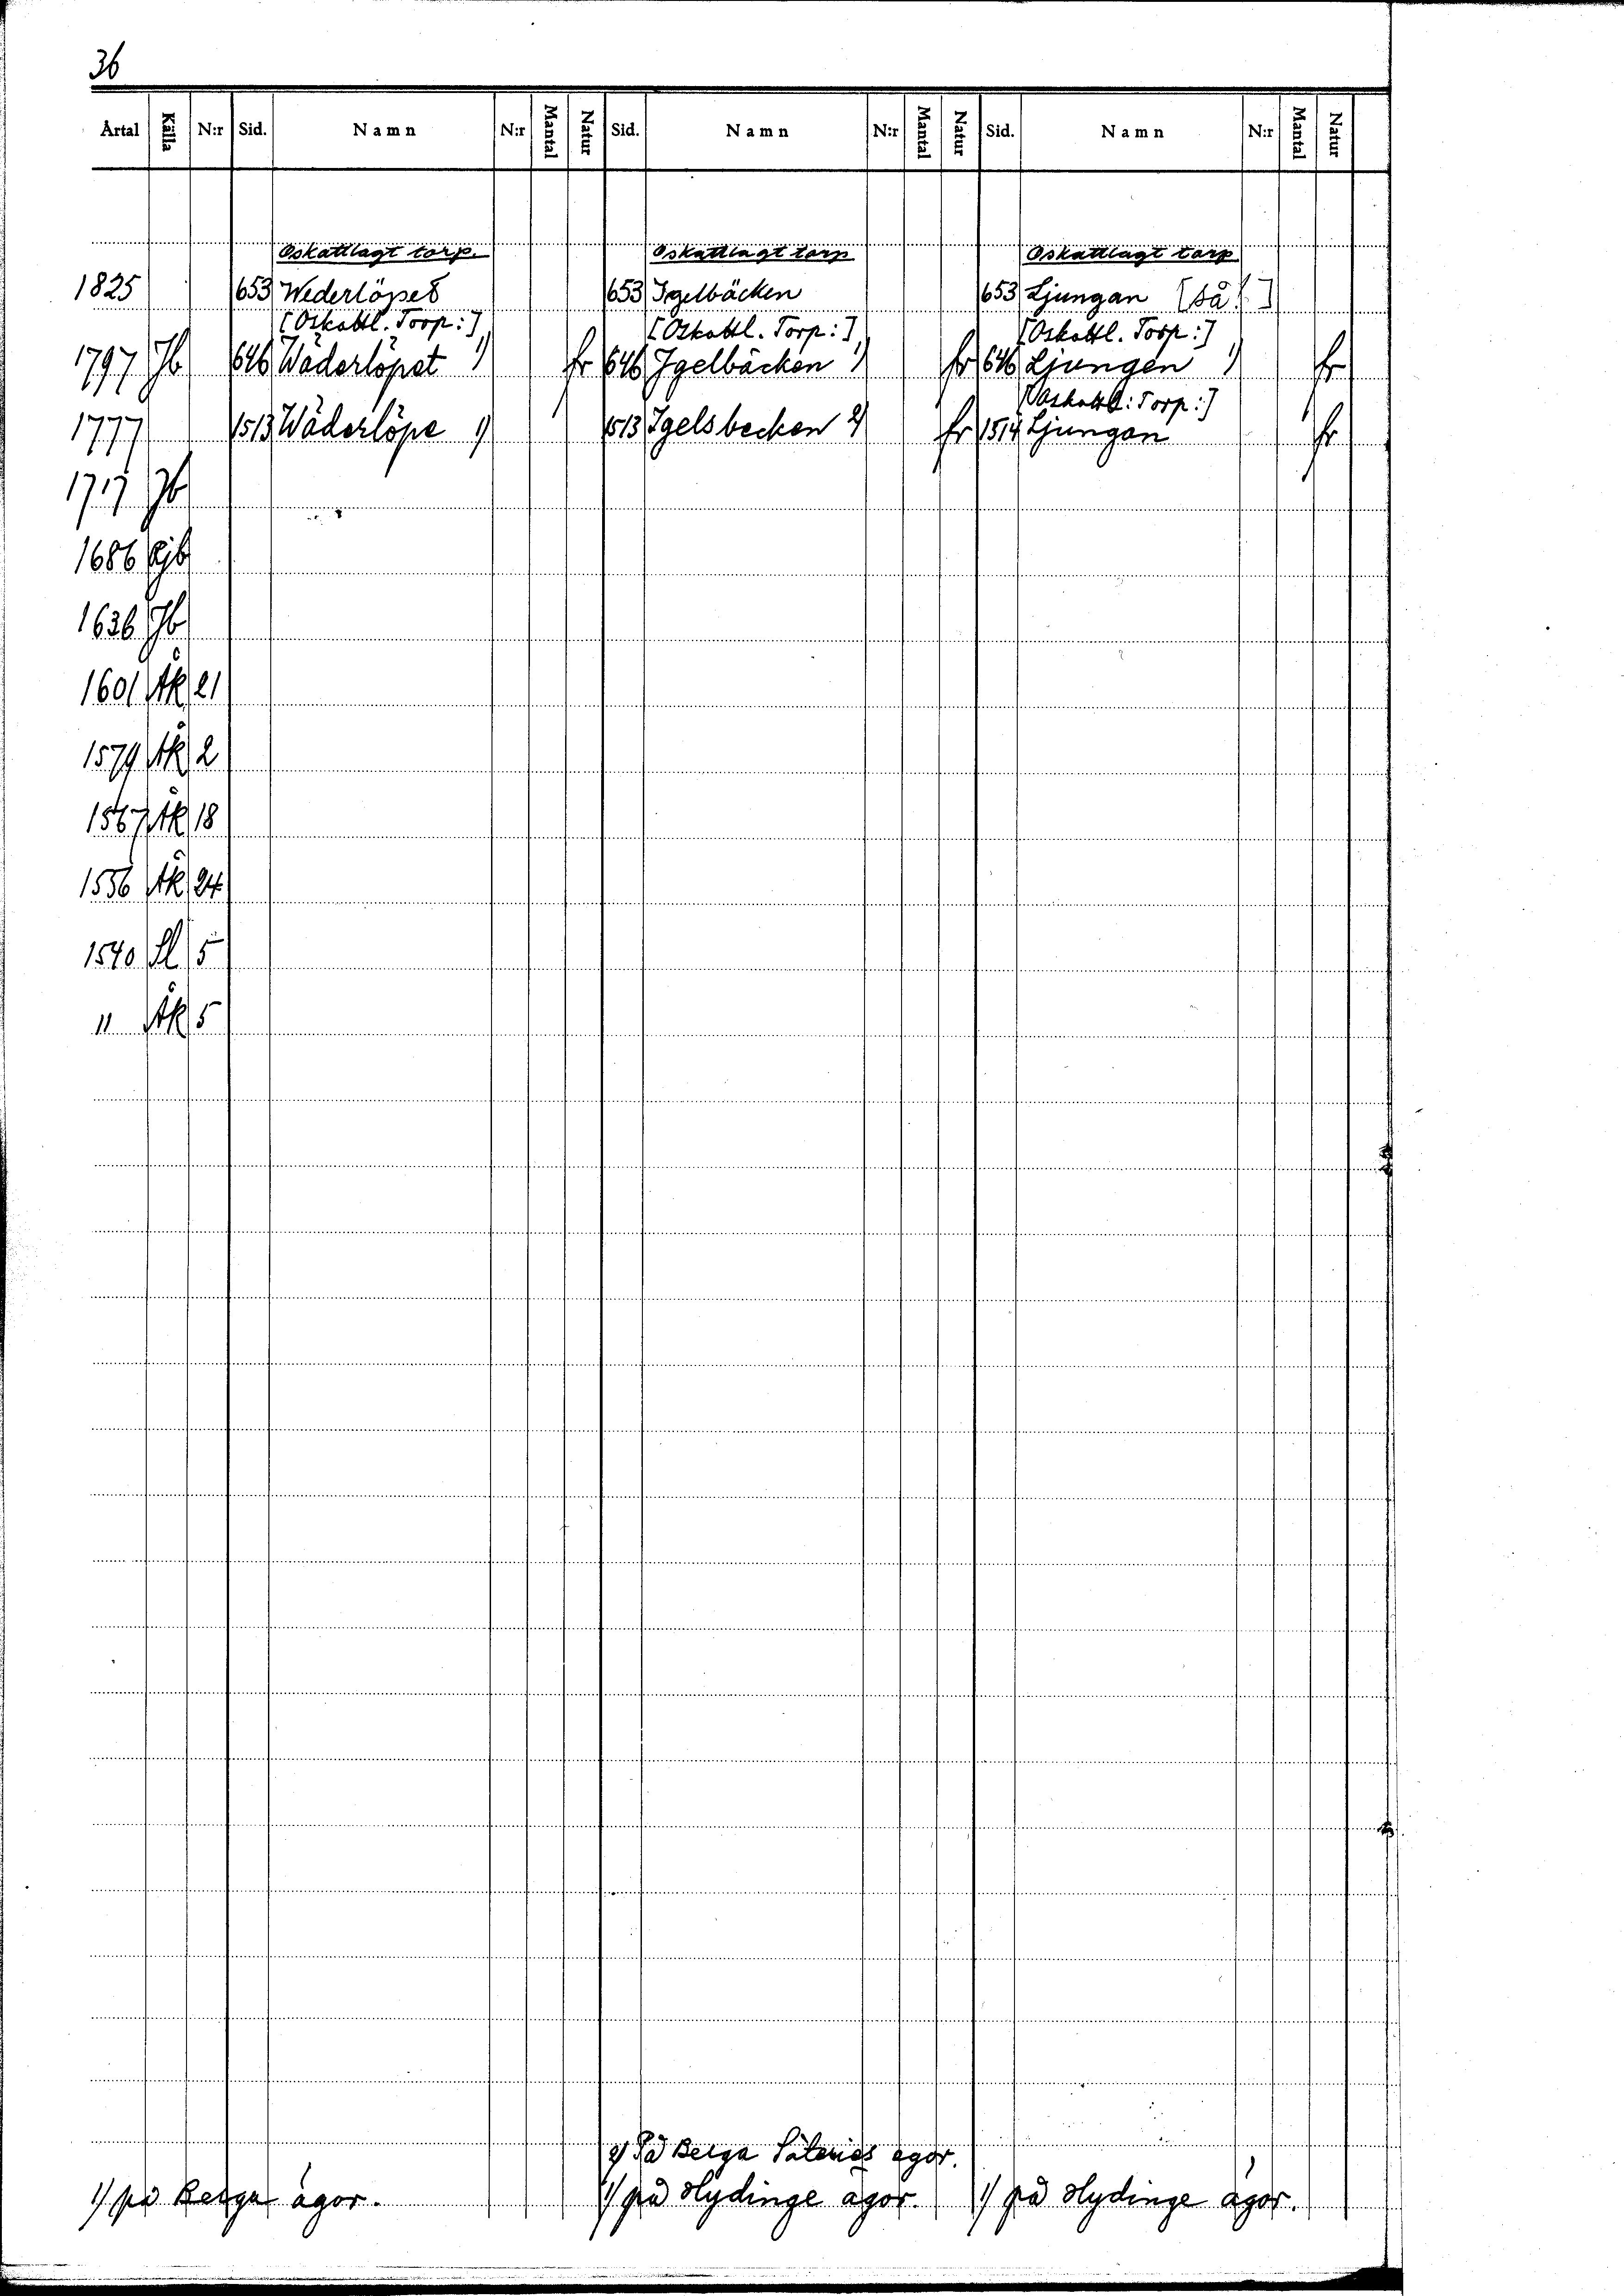 36
Årtal Källa N:r Sid. Namn N:r Mantal Natur Sid. Namn N:r Mantal Natur Sid. Namn N:r Mantal Natur
Oskattlagt torp. Oskattlagt torp Oskattlagt torp
1825 653 Wederlöpet 653 Igelbäcken 653 Ljungan [så!]
[Oskattl. Torp:] [Oskattl. Torp:] [Oskattl. Torp:]
1797 Jb 646 Wäderlöpet 1) fr 646 Igelbäcken 1) fr 646 Ljungen 1) fr
[Oskattl: Torp:]
1777 1513 Wäderlöpe 1) 1513 Igelsbecken 2) fr 1514 Ljungan fr
1717 Jb
1686 Rjb
1636 Jb
1601 Äk 21
1579 Äk 2
1567 Äk 18
1556 Åk 24
1540 Sl 5
" Åk 5
2) På Berga Säteries ägor.
1) på Berga ägor. 1) på Hydinge ägor. 1) på Hydinge ägor.